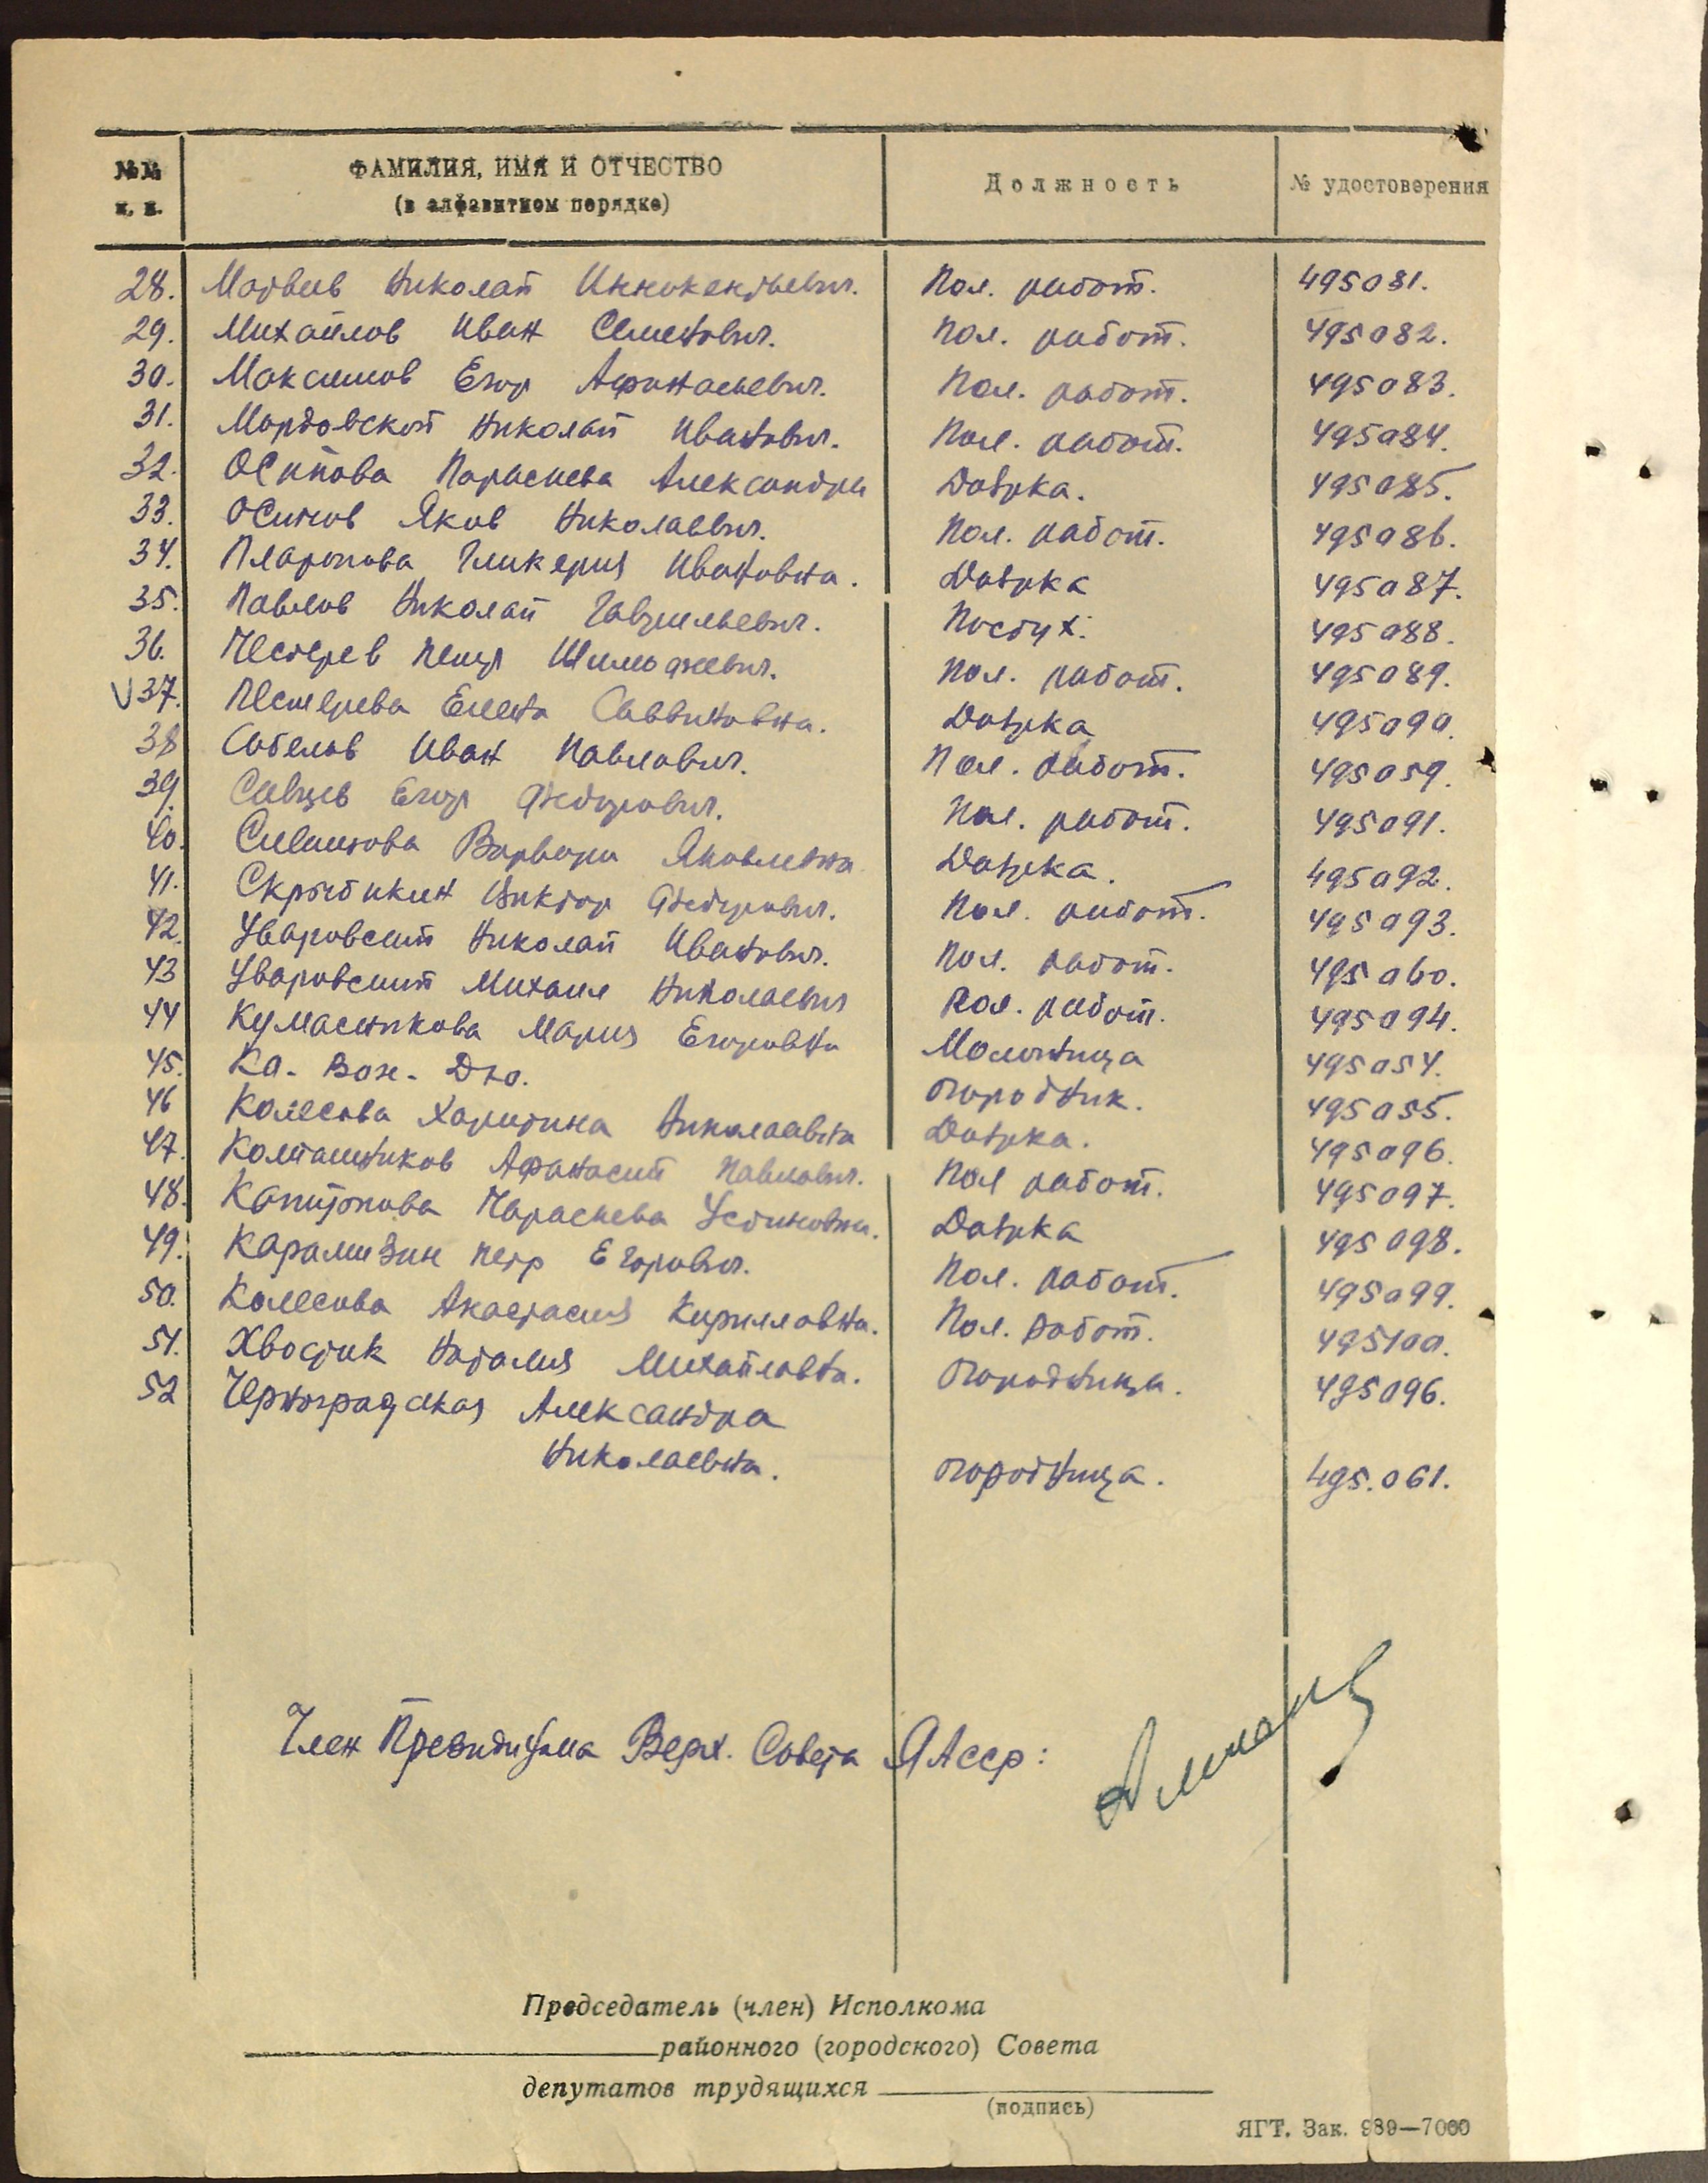 №№ ФАМИЛИЯ, ИМЯ И ОТЧЕСТВО Должность № удостоверения
п. п. (в алфавитном порядке)
28. Матвеев Николай Иннокентьевич. Пол. работ. 495081.
29. Михайлов Иван Семенович. Пол. работ. 495082.
30. Максимов Егор Афанасьевич. Пол. работ. 495083.
31. Мордовской Николай Иванович. Пол. работ. 495084.
32. Осипова Параскева Александра Доярка. 495085.
33. Осипов Яков Николаевич. Пол. работ. 495086.
34. Платонова Гликерия Ивановна. Доярка 495087.
35. Павлов Николай Гаврильевич. Пастух. 495088.
36. Пестерев Петр Шимодневич. Пол. работ. 495089.
V 37. Пестерева Елена Саввиновна. Доярка 495090.
38 Событов Иван Павлович. Пол. работ. 495059.
39. Саввев Егор Федорович. Пол. работ. 495091.
40. Варвара Яковлевна Доярка. 495092.
41. Скрыбикин Виктор Федорович. Пол. работ. 495093.
42. Уваровский Николай Иванович. Пол. работ. 495060.
43 Уваровский Михаил Николаевич Пол. работ. 495094.
44 Кумасникова Мария Егоровна Молотница 495054.
45. Ка-Вон-Дю. огородник. 495055.
46 Колесова Харитина Николаевна Доярка. 495096.
47. Колташников Афанасий Павлович. Пол работ. 495097.
48. Капитонова Параскева Устиновна. Доярка 495098.
49. Карамизин Петр Егорович. Пол. работ. 495099.
50. Колесова Анастасия Кирилловна. Пол. работ. 495100.
51. Хвостик Наталия Михайловна. огородница. 495096.
52 Черноградская Александра
Николаевна. огородница. 495.061.
Член Президиума Верх. Совета ЯАССР:
Председатель (член) Исполкома
районного (городского) Совета
депутатов трудящихся
(подпись)
ЯГТ. Зак. 989—7000